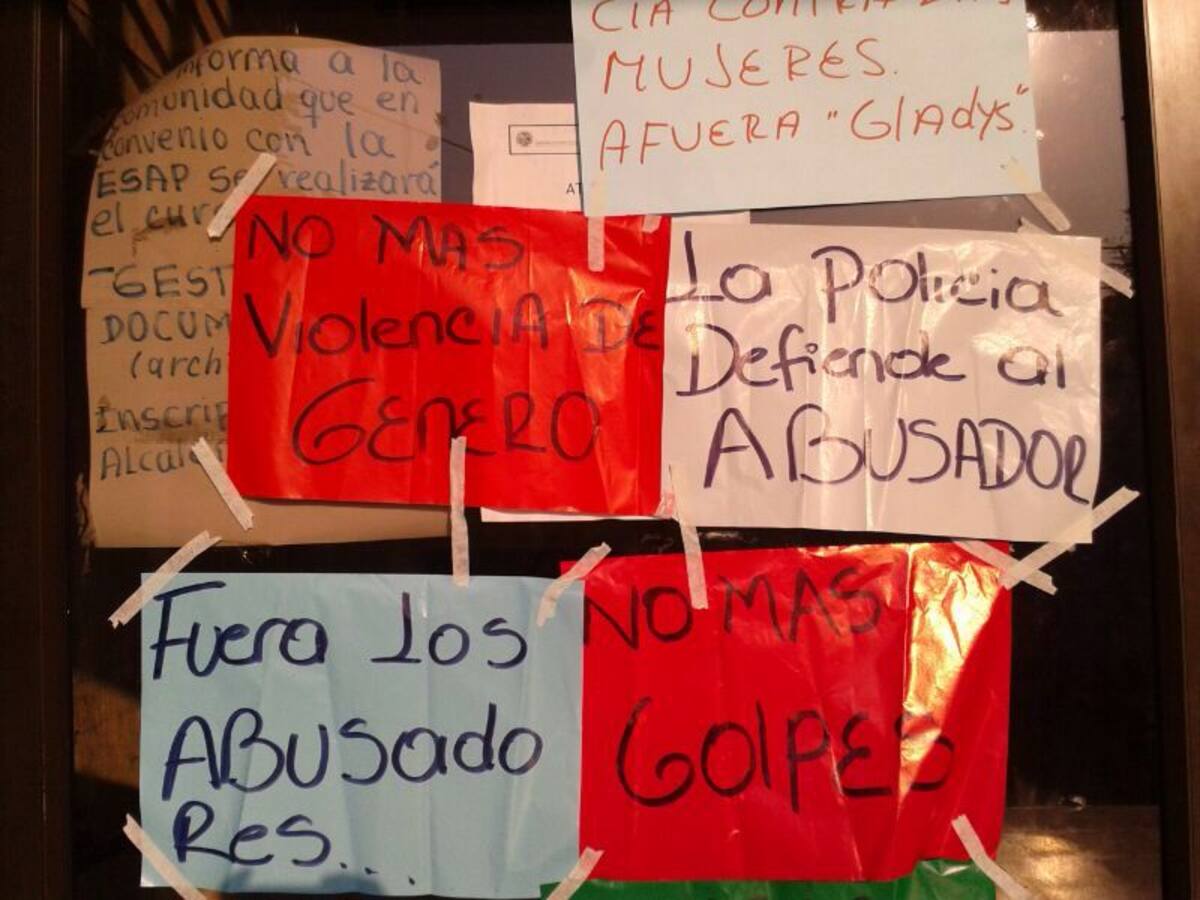 informa a la
comunidad que en
convenio con la
ESAP se realizará
el cur
-GEST
DOCUM
(arch
Inscrip
Alcal
CIA CONTRA
MUJERES.
AFUERA "GlAdys".
AT
NO MAS
ViolenciA DE
GENERO
La Policia
Defiende al
ABUSADOR
Fuera Los
ABUSado
Res...
NO MAS
GolPES